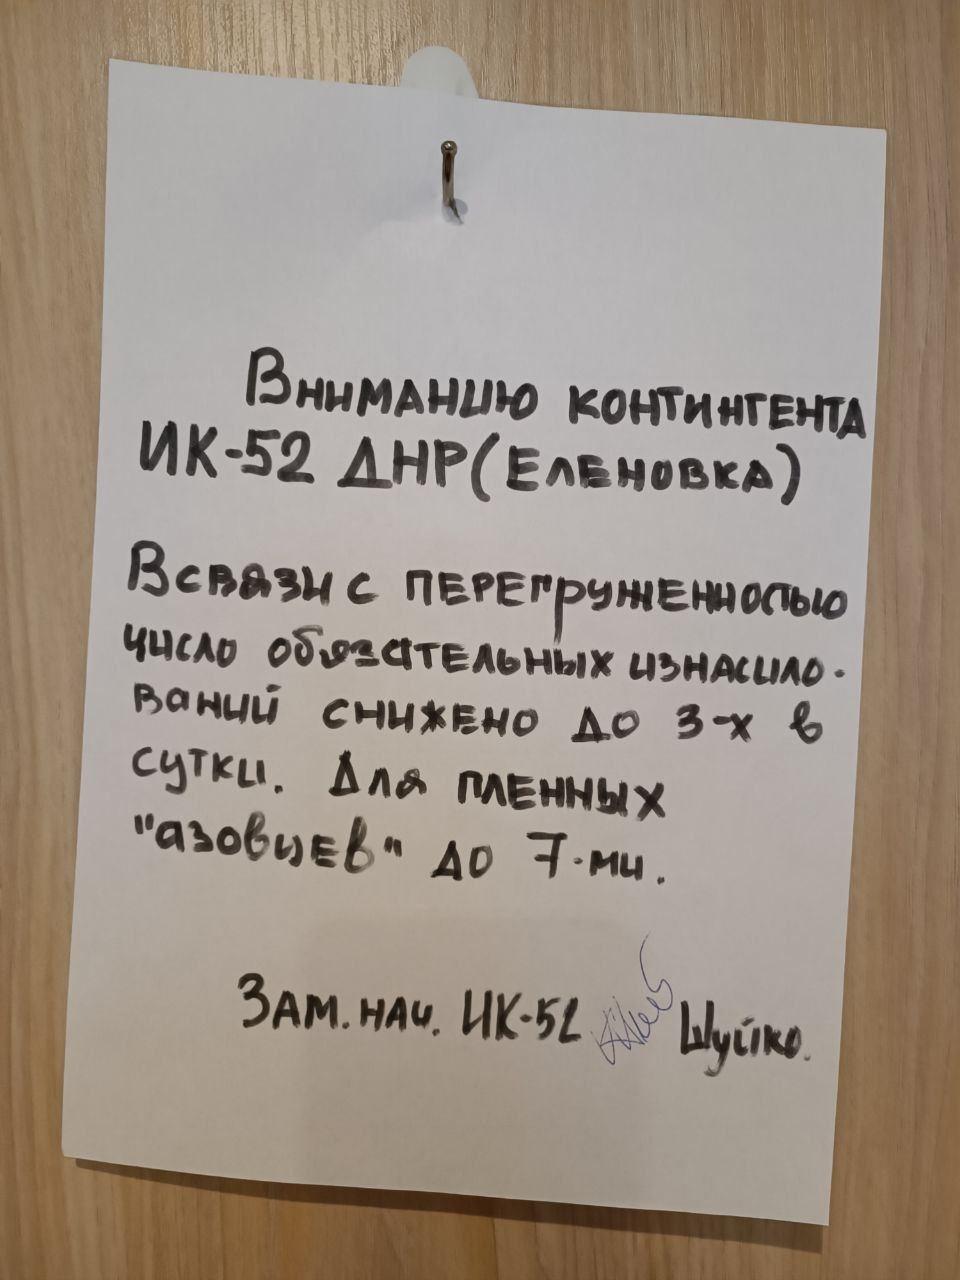 Вниманию контингента
ИК-52 ДНР (Еленовка)
В связи с перегруженностью
число обязательных изнасило-
ваний снижено до 3-х в
сутки. Для пленных
"азовцев" до 7-ми.
Зам. нач. ИК-52 Шуйко.